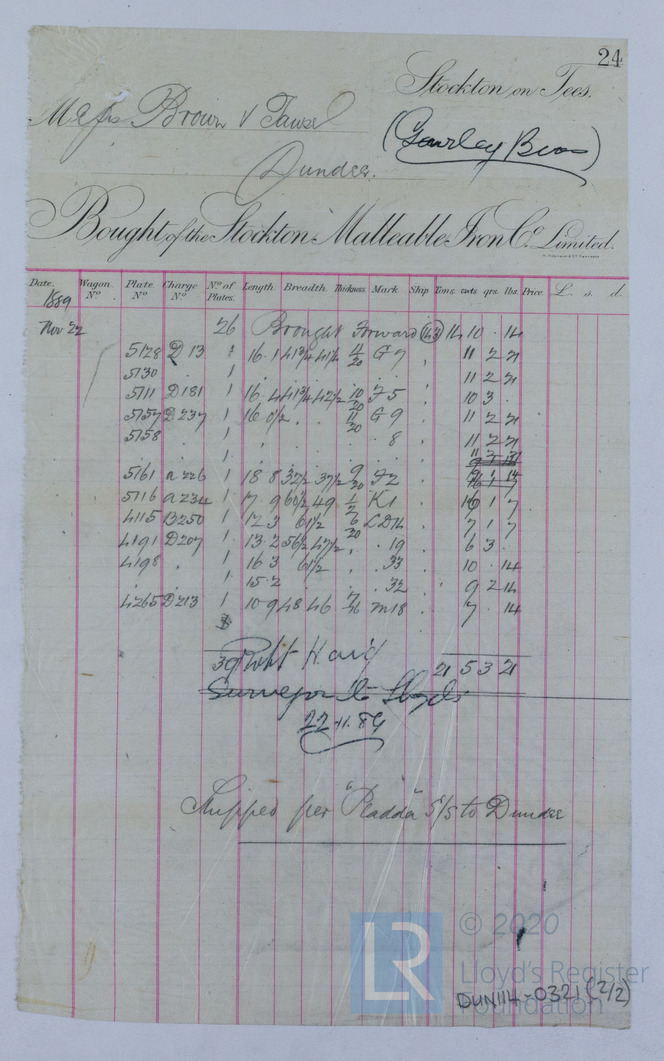 24
Stockton on Tees.
Messrs Brown & Tawse
(Gourley Bros)
Dundee.
Bought of the Stockton Malleable Iron Co. Limited.
Date. Wagon No. Plate No. Charge No. No. of Plates. Length. Breadth. Thickness. Mark. Ship. Tons. cwts. qrs. lbs. Price. L. s. d.
1889
Nov 22 26 Brought Forward (43) 14 10 . 14
5128 D 13 1 16 . 1 41 3/4 41 1/4 11/20 G 7 . 11 2 21
5130 . 1 . . . . . 11 2 21
5111 D181 1 16 . 4 41 3/4 42 1/2 10/20 F 5 . 10 3 .
5157 D237 1 16 0 1/2 . . 11/20 G 9 . 11 2 21
5158 . 1 . . . . 8 . 11 2 21
5161 a 226 1 18 8 32 1/2 37 1/2 9/20 F2
5116 a 234 1 17 . 9 60 1/2 49 1/2 K1 . 16 1 7
4115 B250 1 12 3 61/2 6/20 LD14 . 7 1 7
4191 D207 1 13 . 2 56 1/2 47 1/2 . . 19 . 6 3 .
4198 . 1 16 3 61/2 . . 33 . 10 . 14
. . 1 15 . 2 . . . 32 . 9 2 14
4265 D213 1 10 . 9 48 46 7/16 M18 . 7 . 14
39 Robt Haig 21 5 3 21
Surveyor to Lloyds
22.11.89
Shipped per "Pladda" S/S to Dundee
LR
© 2020
Lloyd's Register
Foundation
DUN114-0321 (2/2)